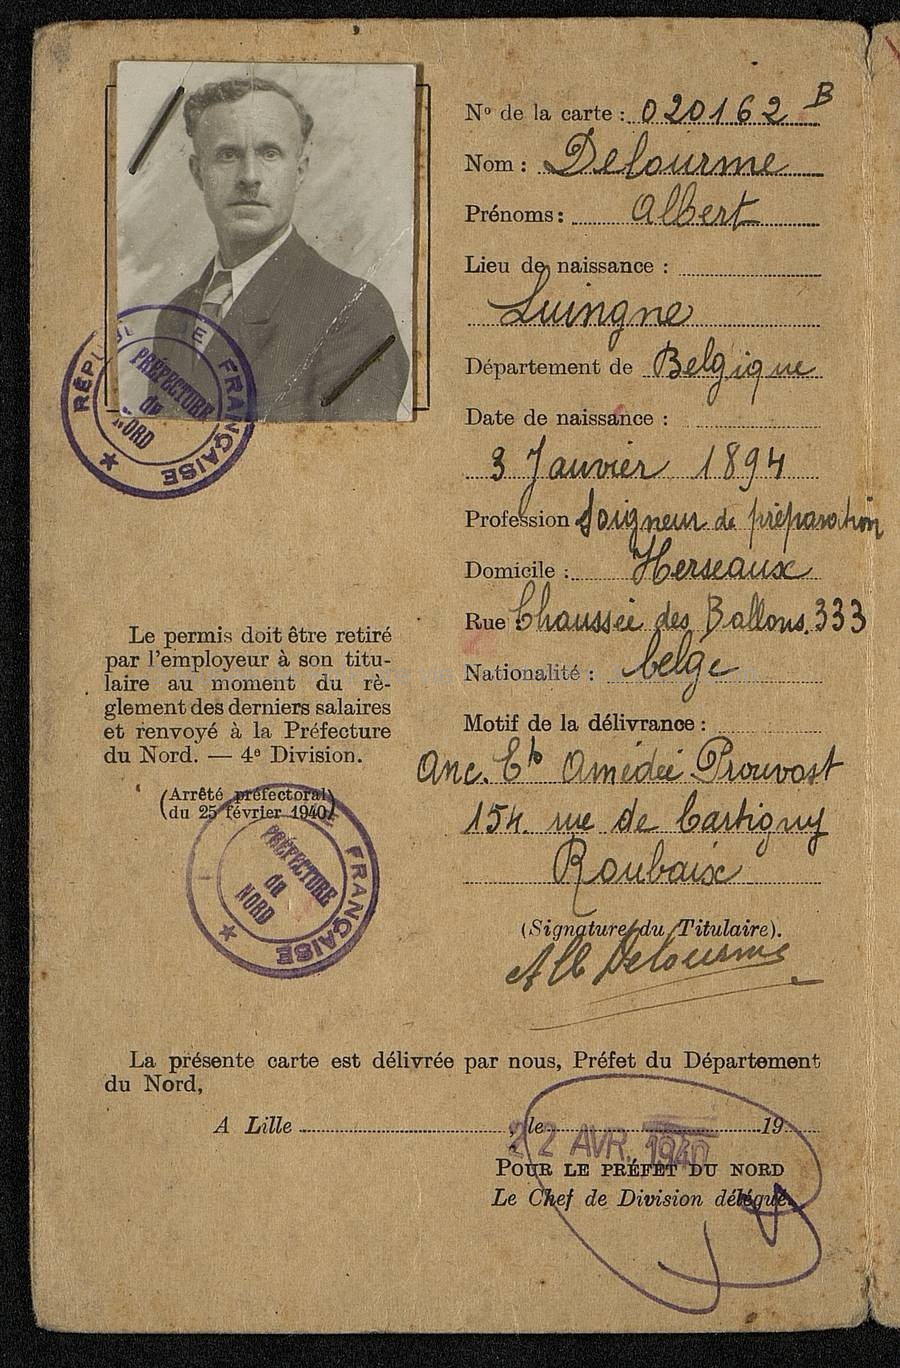 N° de la carte : 020162 B
Nom : Delourme
Prénoms : Albert
Lieu de naissance :
Luingne
Département de Belgique
Date de naissance :
3 Janvier 1894
Profession Soigneur de préparation
Domicile : Herseaux
Rue Chaussée des Ballons. 333
Nationalité : belge
Motif de la délivrance :
Anc. Ets Amédée Prouvost
154. rue de Cartigny
Roubaix
(Signature du Titulaire).
Alb Delourme
RÉPUBLIQUE FRANÇAISE
PRÉFECTURE
du
NORD
Le permis doit être retiré
par l'employeur à son titu-
laire au moment du rè-
glement des derniers salaires
et renvoyé à la Préfecture
du Nord. — 4e Division.
(Arrêté préfectoral)
(du 25 février 1940)
FRANÇAISE
PRÉFECTURE
du
NORD
La présente carte est délivrée par nous, Préfet du Département
du Nord,
A Lille , le 19
22 AVR. 1940
POUR LE PRÉFET DU NORD
Le Chef de Division délégué.